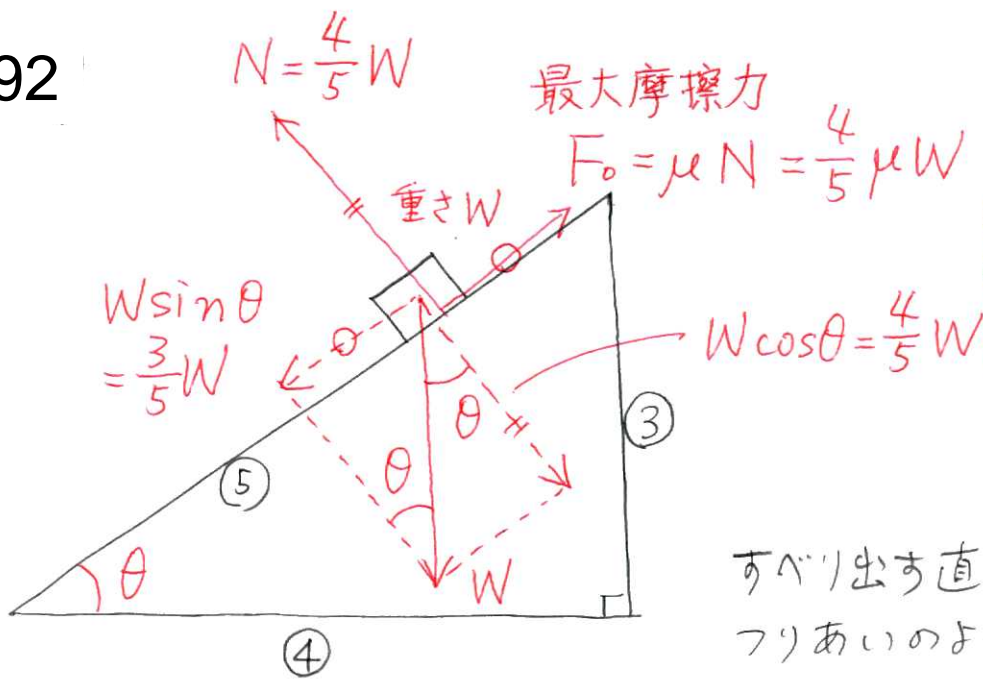 92
N = 4/5 W
最大摩擦力
F₀ = μN = 4/5 μW
重さW
W sinθ
= 3/5 W
W cosθ = 4/5 W
θ
θ
③
⑤
θ
W
④
すべり出す直
つりあいのよ